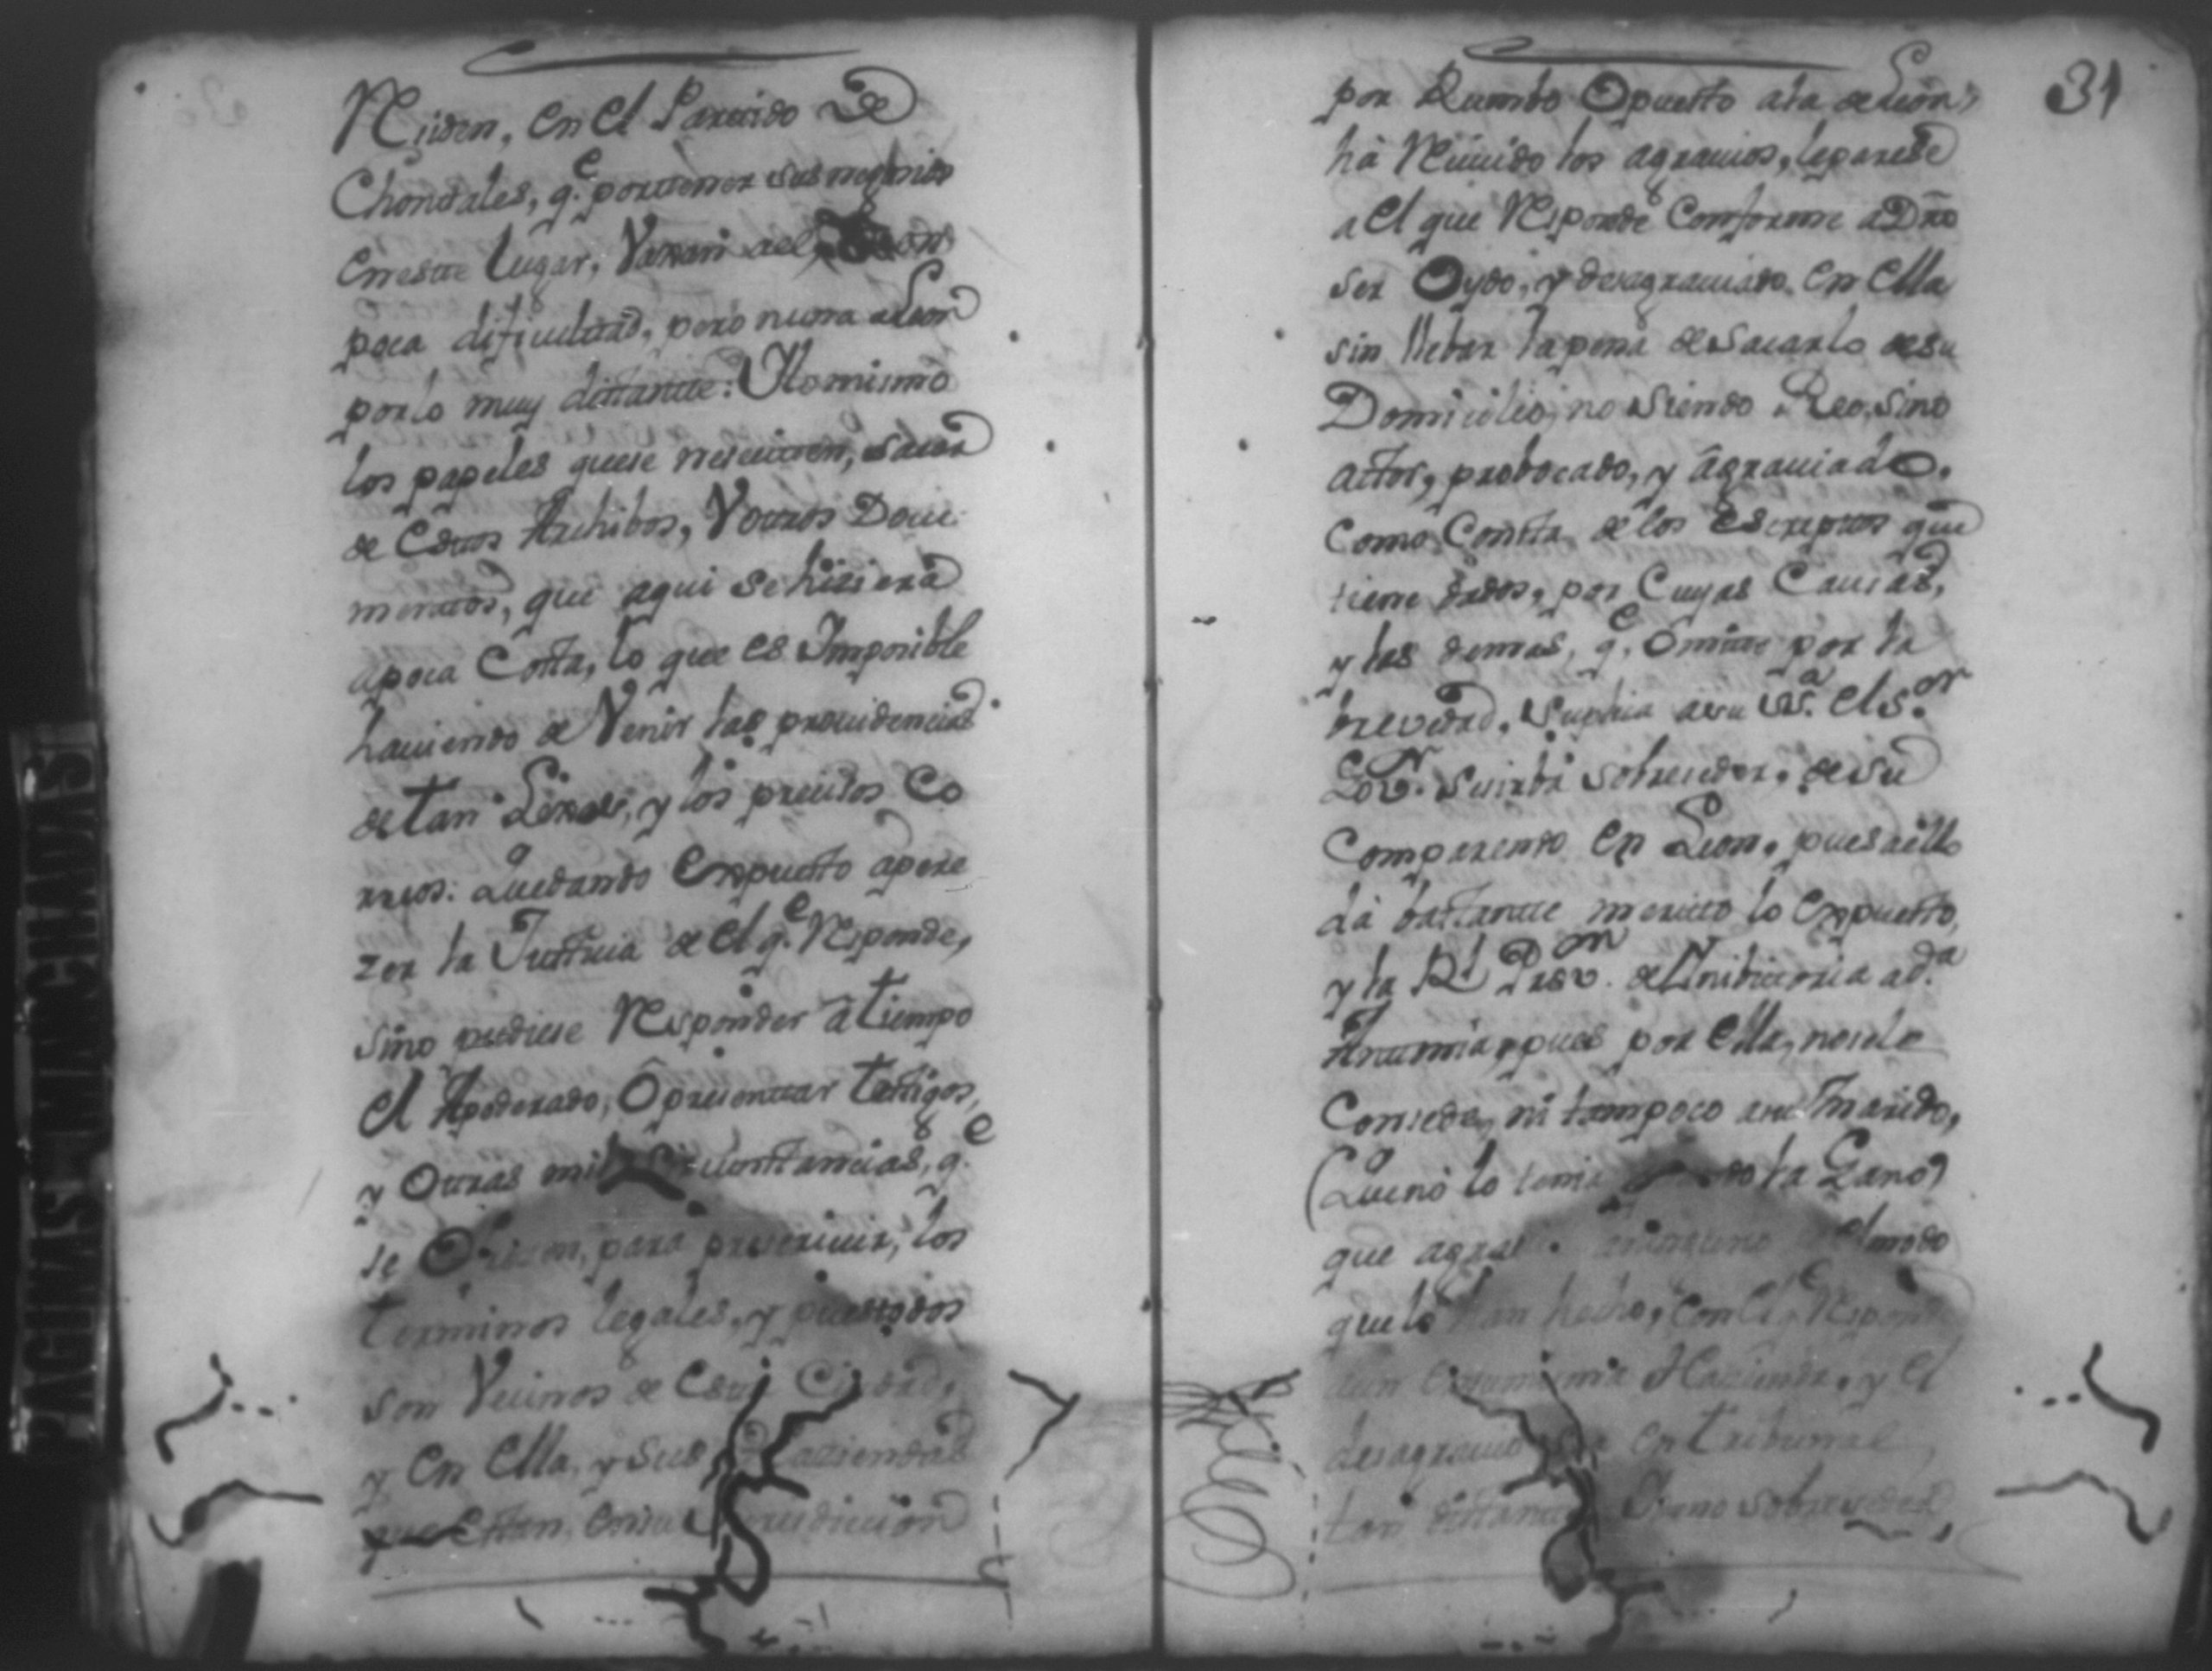 Residen, en el Partido de
Chontales, q.e por tener sus negocios
en este lugar, Varan a el
poca dificultad, pero nunca a Leon
por lo muy distante: Y lo mismo
los papeles que se nesesiten, sacar
de Estos Archibos, Y otros Docu
mentos, que aqui se hiziera
a poca Costa, lo que es Imposible
haviendo de Venir las providencias
de tan Lexos, y los precisos Co
rreos: Quedando Expuesto a pere
zer la Justicia de el q.e Responde,
sino pudiese Responder â tiempo
el Apoderado, Ô presentar testigos,
y Otras mil circunstancias, q.e
se Ofrezen, para los
terminos legales, y
son Vecinos de Esta Ciudad,
y en ella, y sus Haziendas
que estan, en su Jurisdicion
31
por Rumbo Opuesto a la de Leon,
hà Resivido los agravios, le parese
a el que Responde Conforme a Dro
ser Oydo, y desagraviado en ella
sin llebar la pena de sacarlo de su
Domicilio, no siendo Reo, sino
actor, probocado, y âgraviado.
Como Consta de los Escriptos que
tiene dados, por Cuyas Causas,
y las demas, q.e Omite por la
brevedad. Suplica a su S.a el S.or
Gov.r Se sirba Sobreseder, de su
Comparendo en Leon, pues a ello
dà bastante merito lo expuesto,
y la Rl Prov.on de Ynibitoria a d.a
Anumia, pues por ella, no se le
Consede, ni tampoco a su Marido,
(Que no lo tenia la Ganò)
que modo
que lo han hecho, con el q.e Respon
Hazienda, y el
desagravio en tribunal,
tan distante sobreseder,